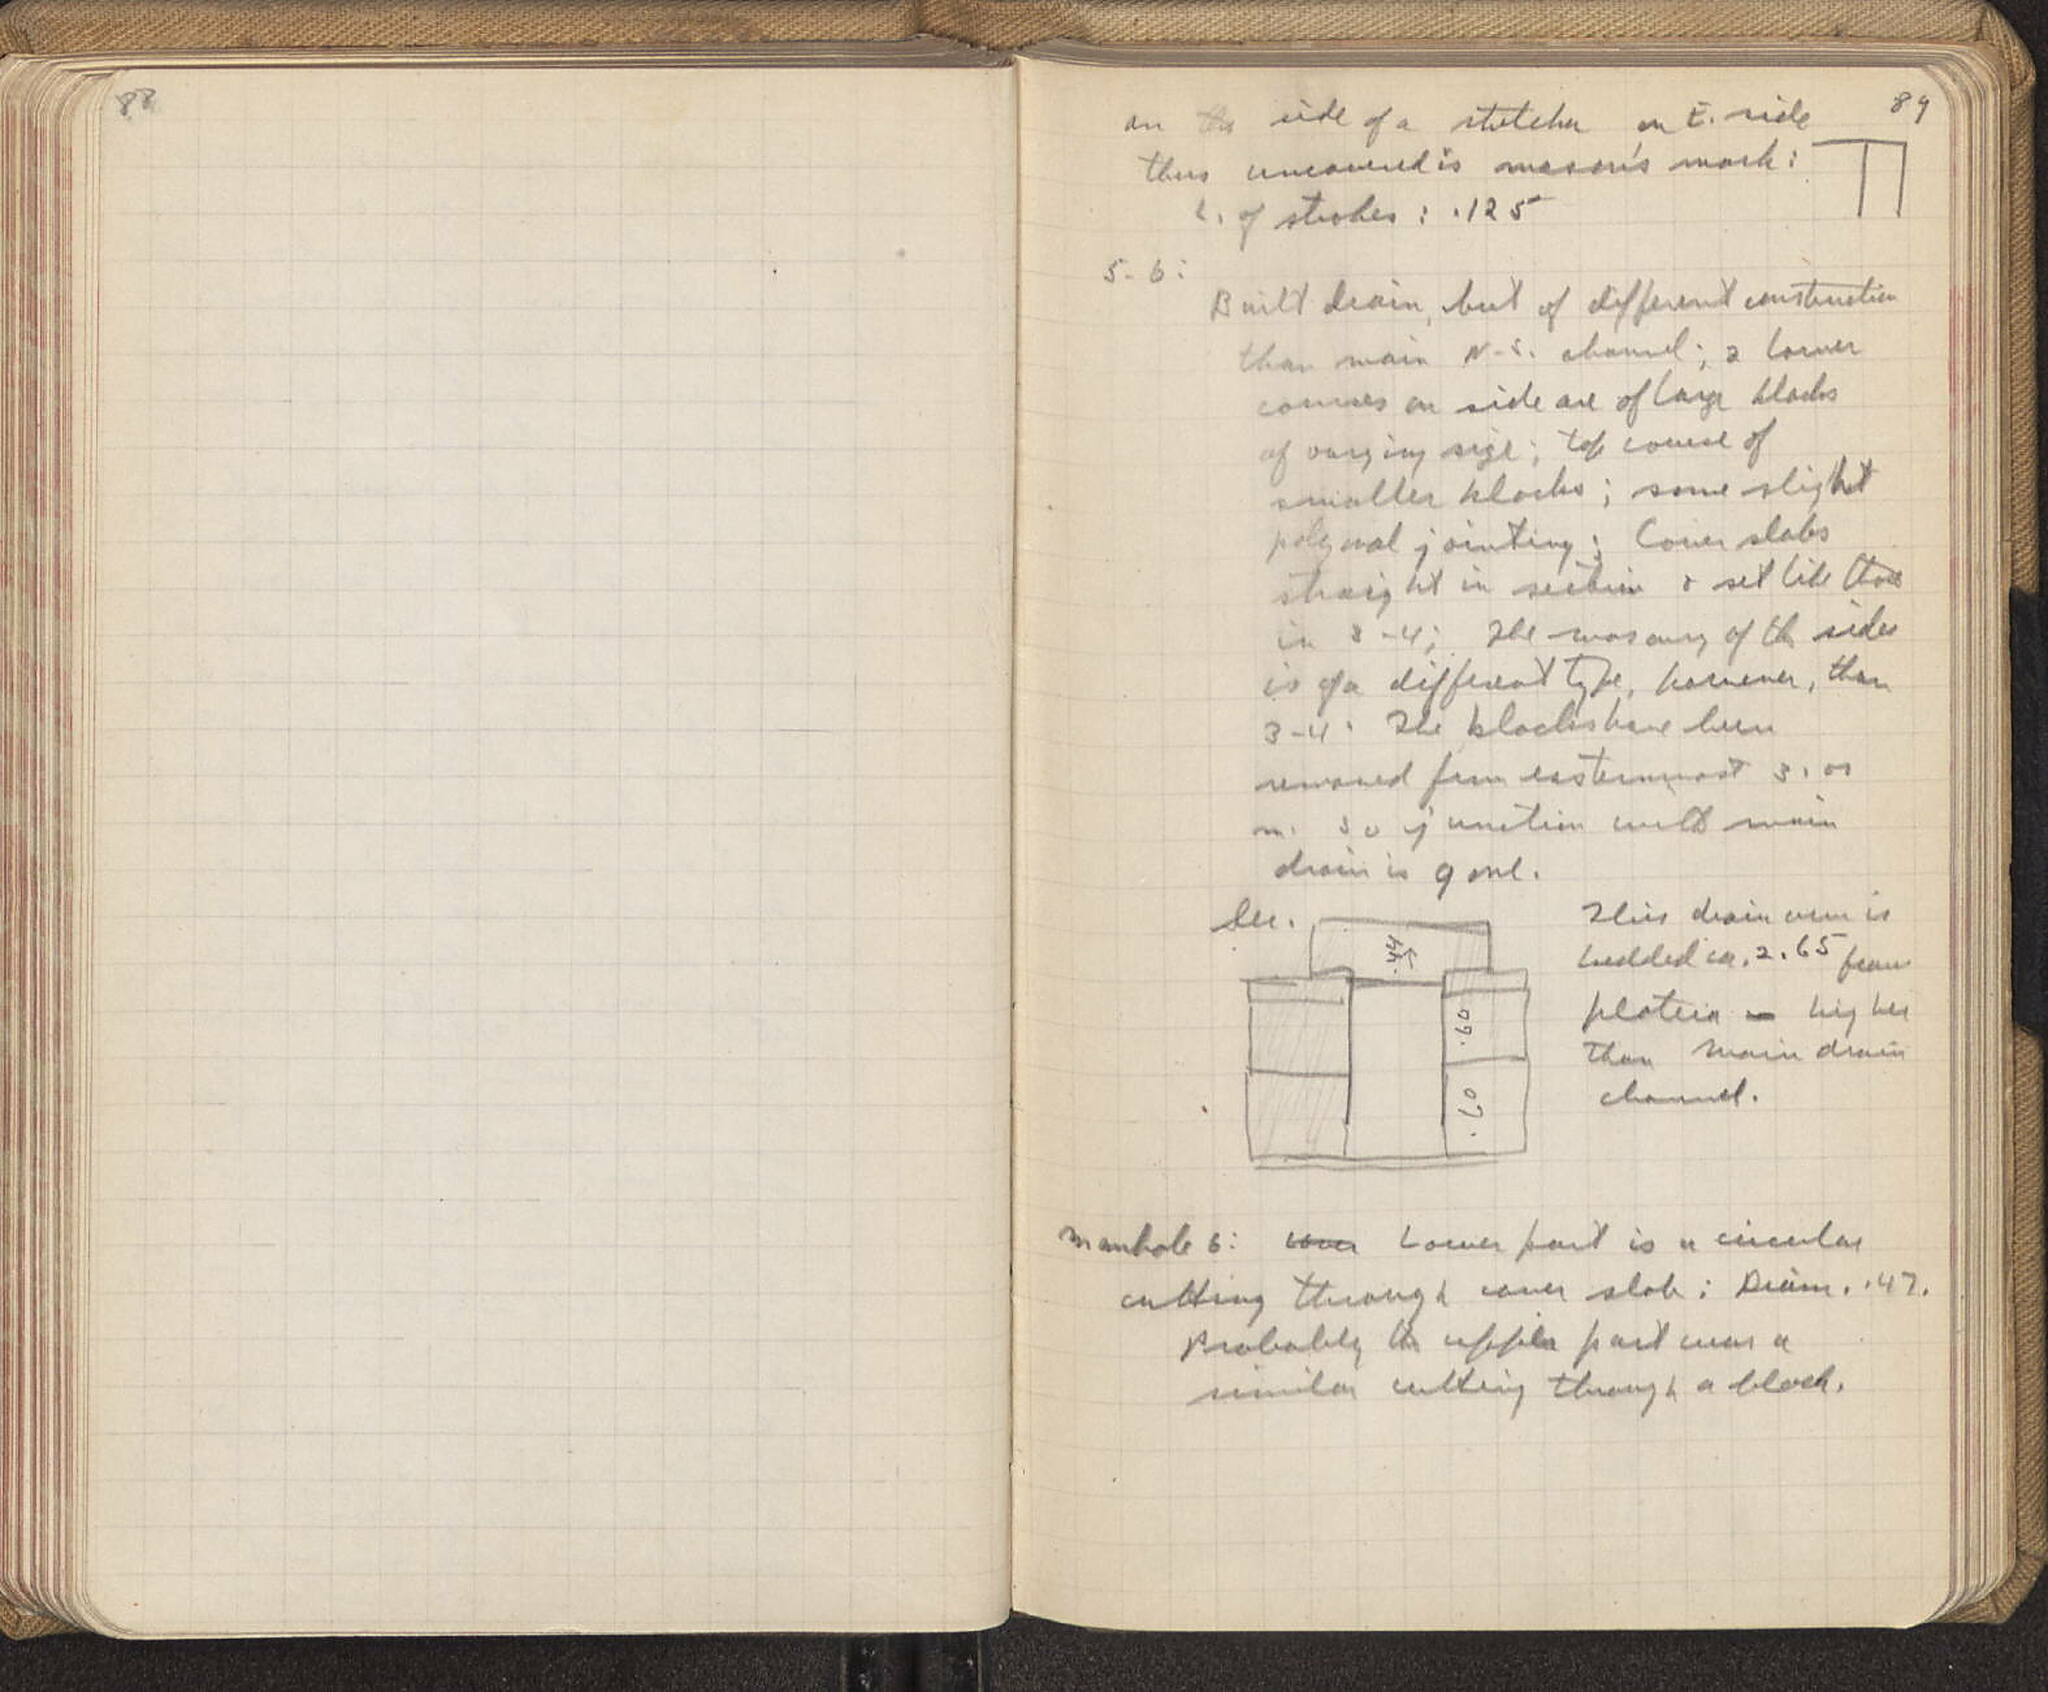 88
89
on the side of a stretcher on E. side
thus uncovered is mason's mark:
L. of strokes: .125
5-6:
Built drain, but of different construction
than main N-S. channel; 2 lower
courses on side are of large blocks
of varying size; top course of
smaller blocks; some slight
polygnal jointing; Cover slabs
straight in section & set like those
in 3-4; The masonry of th sides
is of a different type, however, than
3-4. The blocks have been
removed from easternmost 3.00
m. so junction with main
drain is gone.
Sec.
.44
.60
.70
This drain was
bedded ca. 2.65 from
plateia - higher
than main drain
channel.
Manhole 6: cover Lower part is a circular
cutting through cover slab: Diam. .47.
Probably th upper part was a
similar cutting through a block.